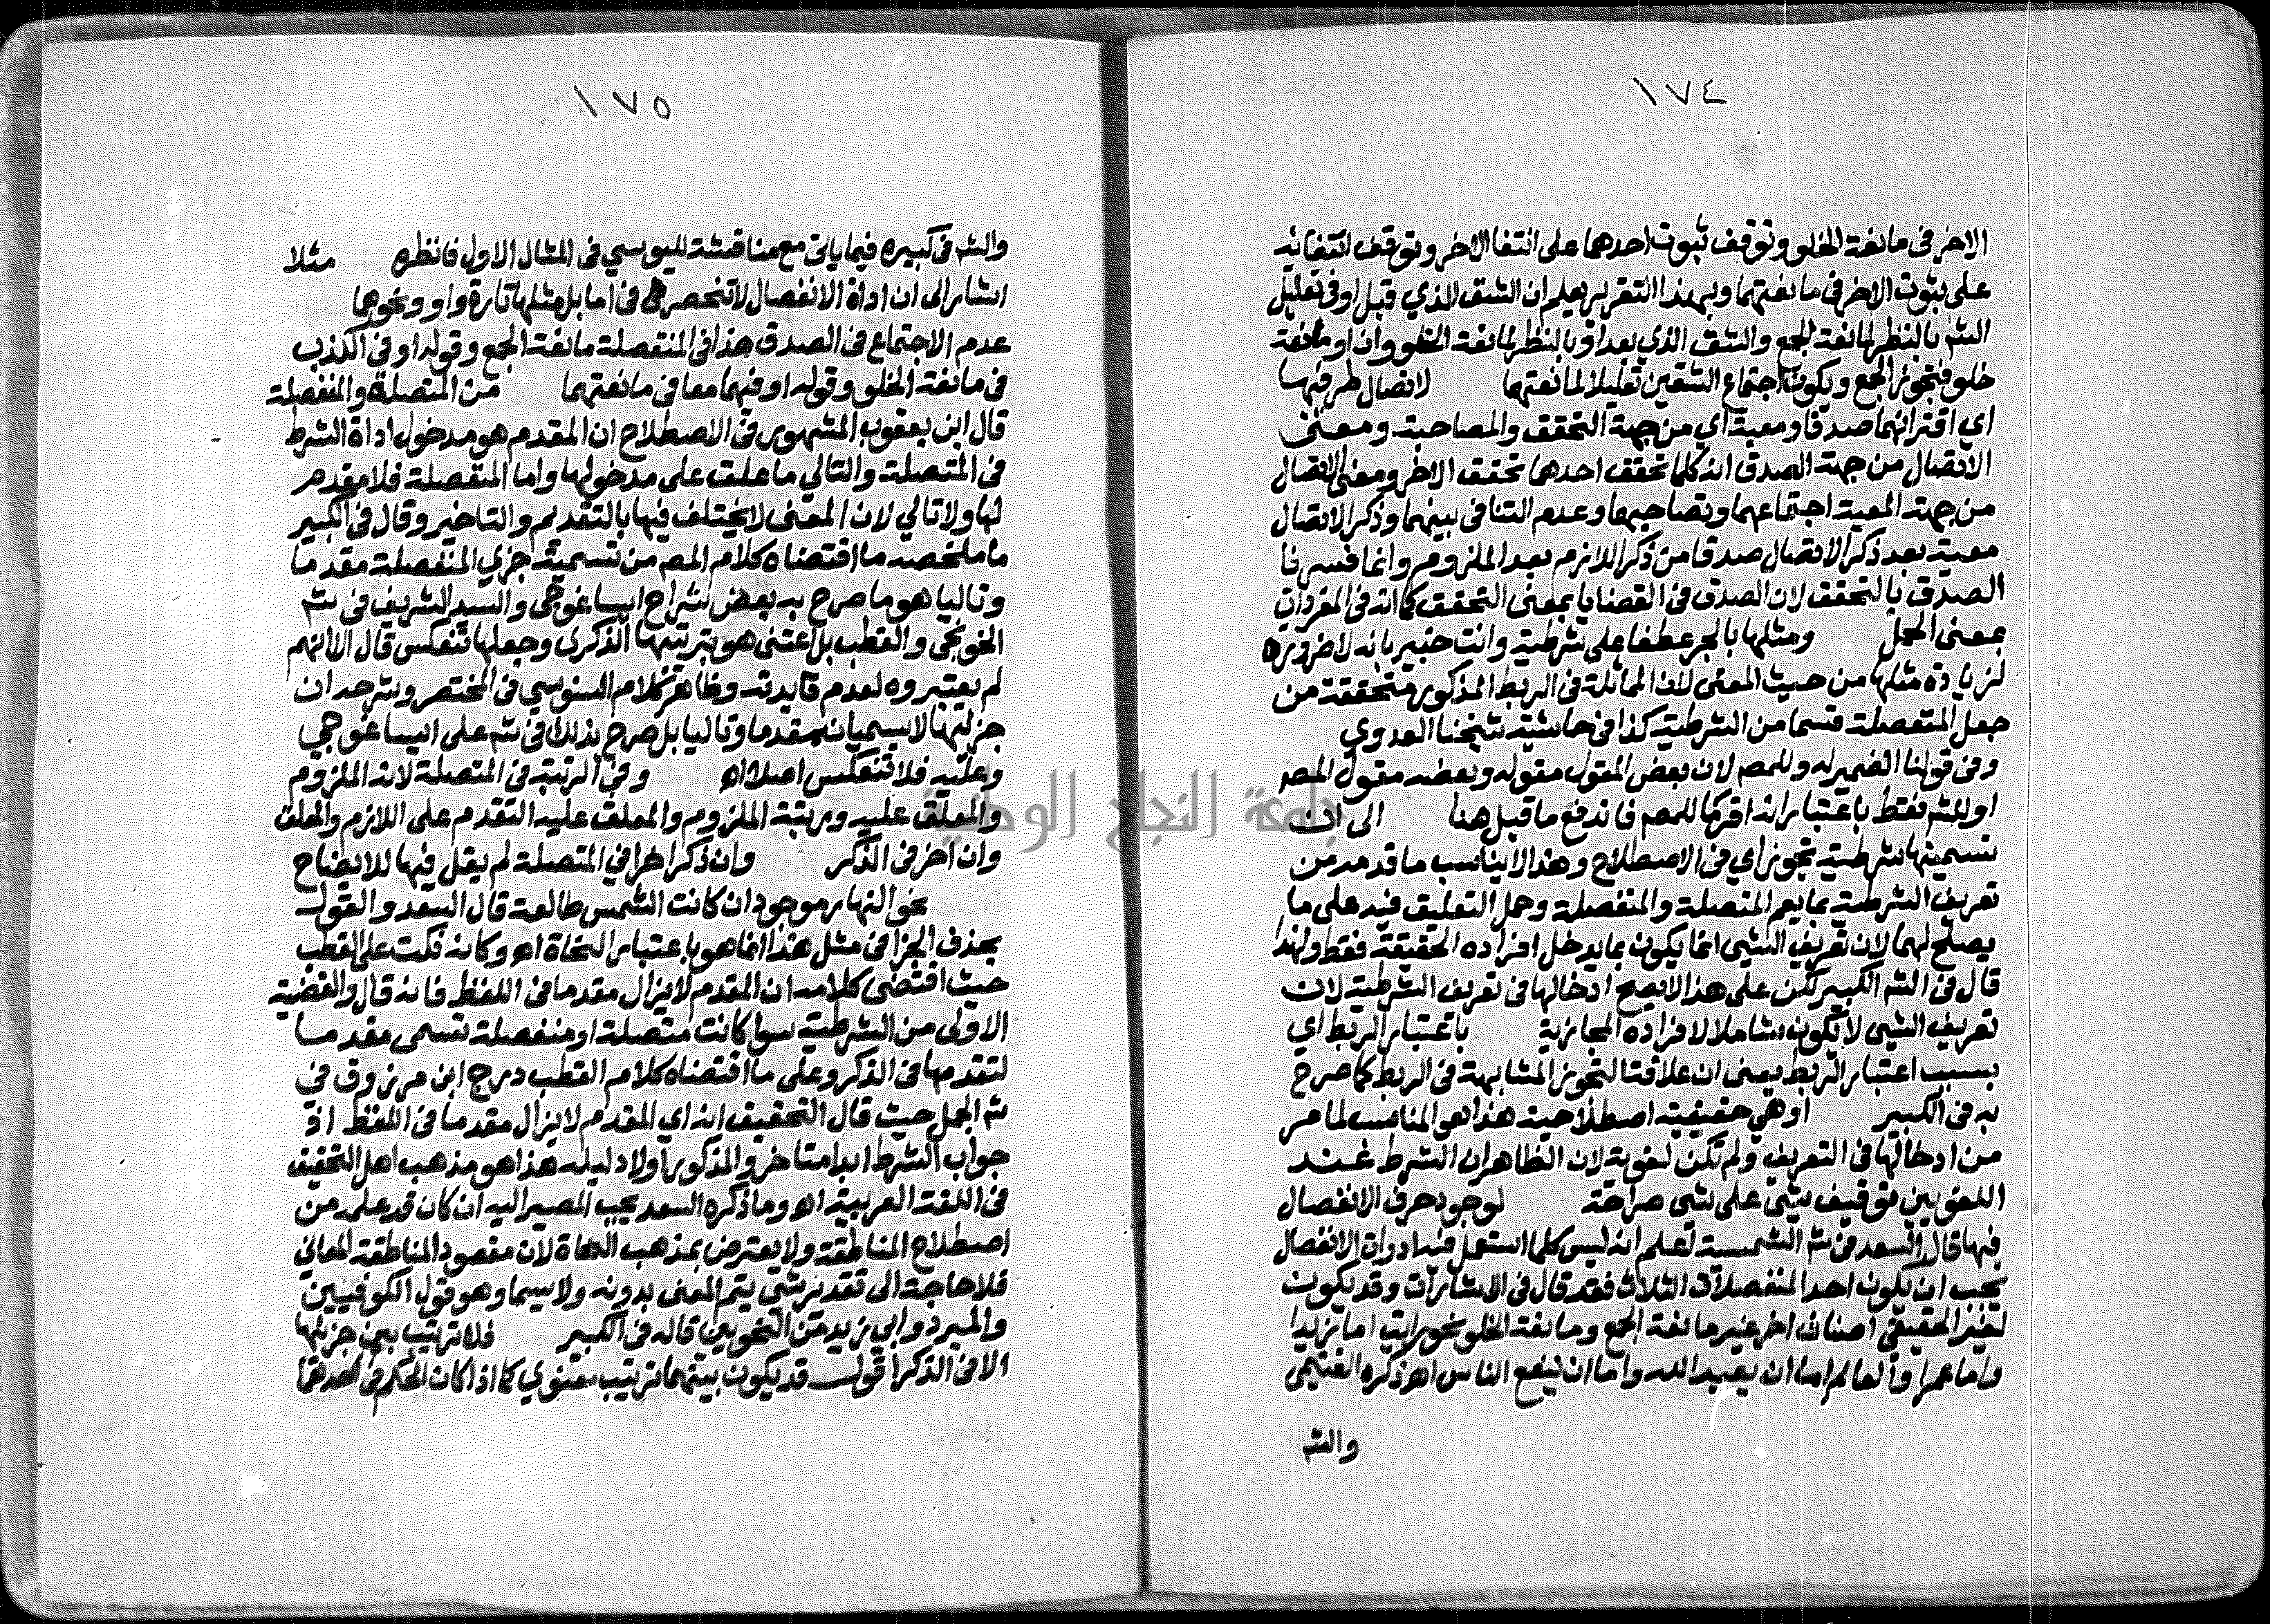 ١٧٤
الاخر فى مانعة الخلو وتوقف ثبوت احدهما على انتفا الاخر وتوقف انتفائه
على ثبوت الاخر فى مانعتهما وبهذا التقرير يعلم ان الشق الذي قبل او فى تعليل
الشم بالنظر لمانعة الجمع والشق الذي بعد او بالنظر لمانعة الخلو وان او مانعة
خلو فتجوز الجمع ويكون اجتماع الشقين تعليلا لمانعتهما لاتصال طرفيها
اي اقترانهما صدقا ومعية اي من جهة التحقق والمصاحبة ومعنى
الاتصال من جهة الصدق انه كلما تحقق احدهما تحقق الاخر ومعنى الاتصال
من جهة المعية اجتماعهما وتصاحبهما وعدم التنافى بينهما وذكر الاتصال
معية بعد ذكر الاتصال صدقا من ذكر اللازم بعد الملزوم وانما فسرنا
الصدق بالتحقق لان الصدق فى القضايا بمعنى التحقق كما انه فى المفردات
بمعنى الحمل ومثلها بالجر عطفا على شرطية وانت خبير بانه لا ضرورة
لزيادة مثلها من حيث المعنى لان المماثلة فى الربط المذكور متحققة من
جعل المنفصلة قسما من الشرطية كذا فى حاشية شيخنا العدوي
وفى قولنا الضمير له وللمص لان بعض المقول مقوله وبعضه مقول المص
او للشم فقط باعتبار انه اقرها للمص فاندفع ما قبل هنا الى ان
تسميتها شرطية تجوز اي فى الاصطلاح وهذا لا يناسب ما قدمه من
تعريف الشرطية بما يعم المتصلة والمنفصلة وحمل التعليق فيه على ما
يصلح لهما لان تعريف الشيى انما يكون بما يدخل افراده الحقيقة فقط ولهذا
قال فى الشم الكبير لكن على هذا لا يصح ادخالها فى تعريف الشرطية لان
تعريف الشيى لا يكون شاملا لافراده المجازية باعتبار الربط اي
بسبب اعتبار الربط يعنى ان علاقة التجوز المشابهة فى الربط كما صرح
به فى الكبير او هي حقيقية اصطلاحية هذا هو المناسب لما مر
من ادخالها فى التعريف ولم تكن لغوية لان الظاهر ان الشرط عند
اللغويين توقيف شيى على شى صراحة لوجود حرف الانفصال
فيها قال السعد فى شم الشمسية لتعلم انه ليس كلما استعمل فيه ادوات الانفصال
يجب ان يكون احد المنفصلات الثلاث فقد قال فى الاشارات وقد يكون
لغير الحقيقي اصناف اخر غير مانعة الجمع ومانعة الخلو نحو رايت اما زيدا
واما عمرا والعالم اما ان يعبد الله واما ان ينفع الناس اهـ ذكره الغنيمى
والشم
١٧٥
والشم فى كبيره فيما ياتى مع مناقشة لليوسي فى المثال الاول فانظره مثلا
اشار الى ان اداة الانفصال لا تنحصر فى اما بل مثلها تارة واو ونحوهما
عدم الاجتماع فى الصدق هذا فى المنفصلة مانعة الجمع وقوله او فى الكذب
فى مانعة الخلو وقوله او فيهما معا فى مانعتهما من المتصلة والمنفصلة
قال ابن يعقوب المشهور فى الاصطلاح ان المقدم هو مدخول اداة الشرط
فى المتصلة والتالي ما علق على مدخولها واما المنفصلة فلا مقدم
لها ولا تالي لان المعنى لا يختلف فيها بالتقديم والتاخير وقال فى الكبير
ما ملخصه ما اقتضاه كلام المص من تسمية جزءي المنفصلة مقدما
وتاليا هو ما صرح به بعض شراح ايساغوجى والسيد الشريف فى شم
الخونجى والقطب بل اعتنى هو بترتيبها الذكرى وجعلها تنعكس قال الا انهم
لم يعتبروه لعدم فايدته وظاهر كلام السنوسي فى المختصر وشرحه ان
جزئيها لا يسميان مقدما وتاليا بل صرح بذلك فى شم على ايساغوجي
وعليه فلا تنعكس اصلا اهـ وفى الرتبة فى المتصلة لانه الملزوم
والمعلق عليه ورتبة الملزوم والمعلق عليه التقدم على اللازم والمعلق
وان اخر فى الذكر وان ذكر اخرا في المتصلة لم يقل فيها للايضاح
نحو النهار موجود ان كانت الشمس طالعة قال السعد والقول
بحذف الجزا فى مثل هذا انما هو باعتبار النحاة اهـ وكانه نكت على القطب
حيث اقتضى كلامه ان المقدم لا يزال مقدما فى اللفظ فانه قال والقضية
الاولى من الشرطية سوا كانت متصلة او منفصلة تسمى مقدما
لتقدمها فى الذكر وعلى ما اقتضاه كلام القطب درج ابن مرزوق في
شم الجمل حيث قال التحقيق انه اي المقدم لا يزال مقدما فى اللفظ اذ
جواب الشرط ابدا متاخر والمذكور اولا دليله هذا هو مذهب اهل التحقيق
فى اللغة العربية اهـ وما ذكره السعد يجب المصير اليه ان كان قد علمه من
اصطلاح المناطقة ولا يعترض بمذهب النحاة لان مقصود المناطقة المعاني
فلا حاجة الى تقدير شي يتم المعنى بدونه ولا سيما وهو قول الكوفيين
والمبرد وابي زيد من النحويين قاله فى الكبير فلا ترتيب بين جزئيها
الا فى الذكر اقول قد يكون بينهما ترتيب معنوي كما اذا كان الحكم فى احدهما